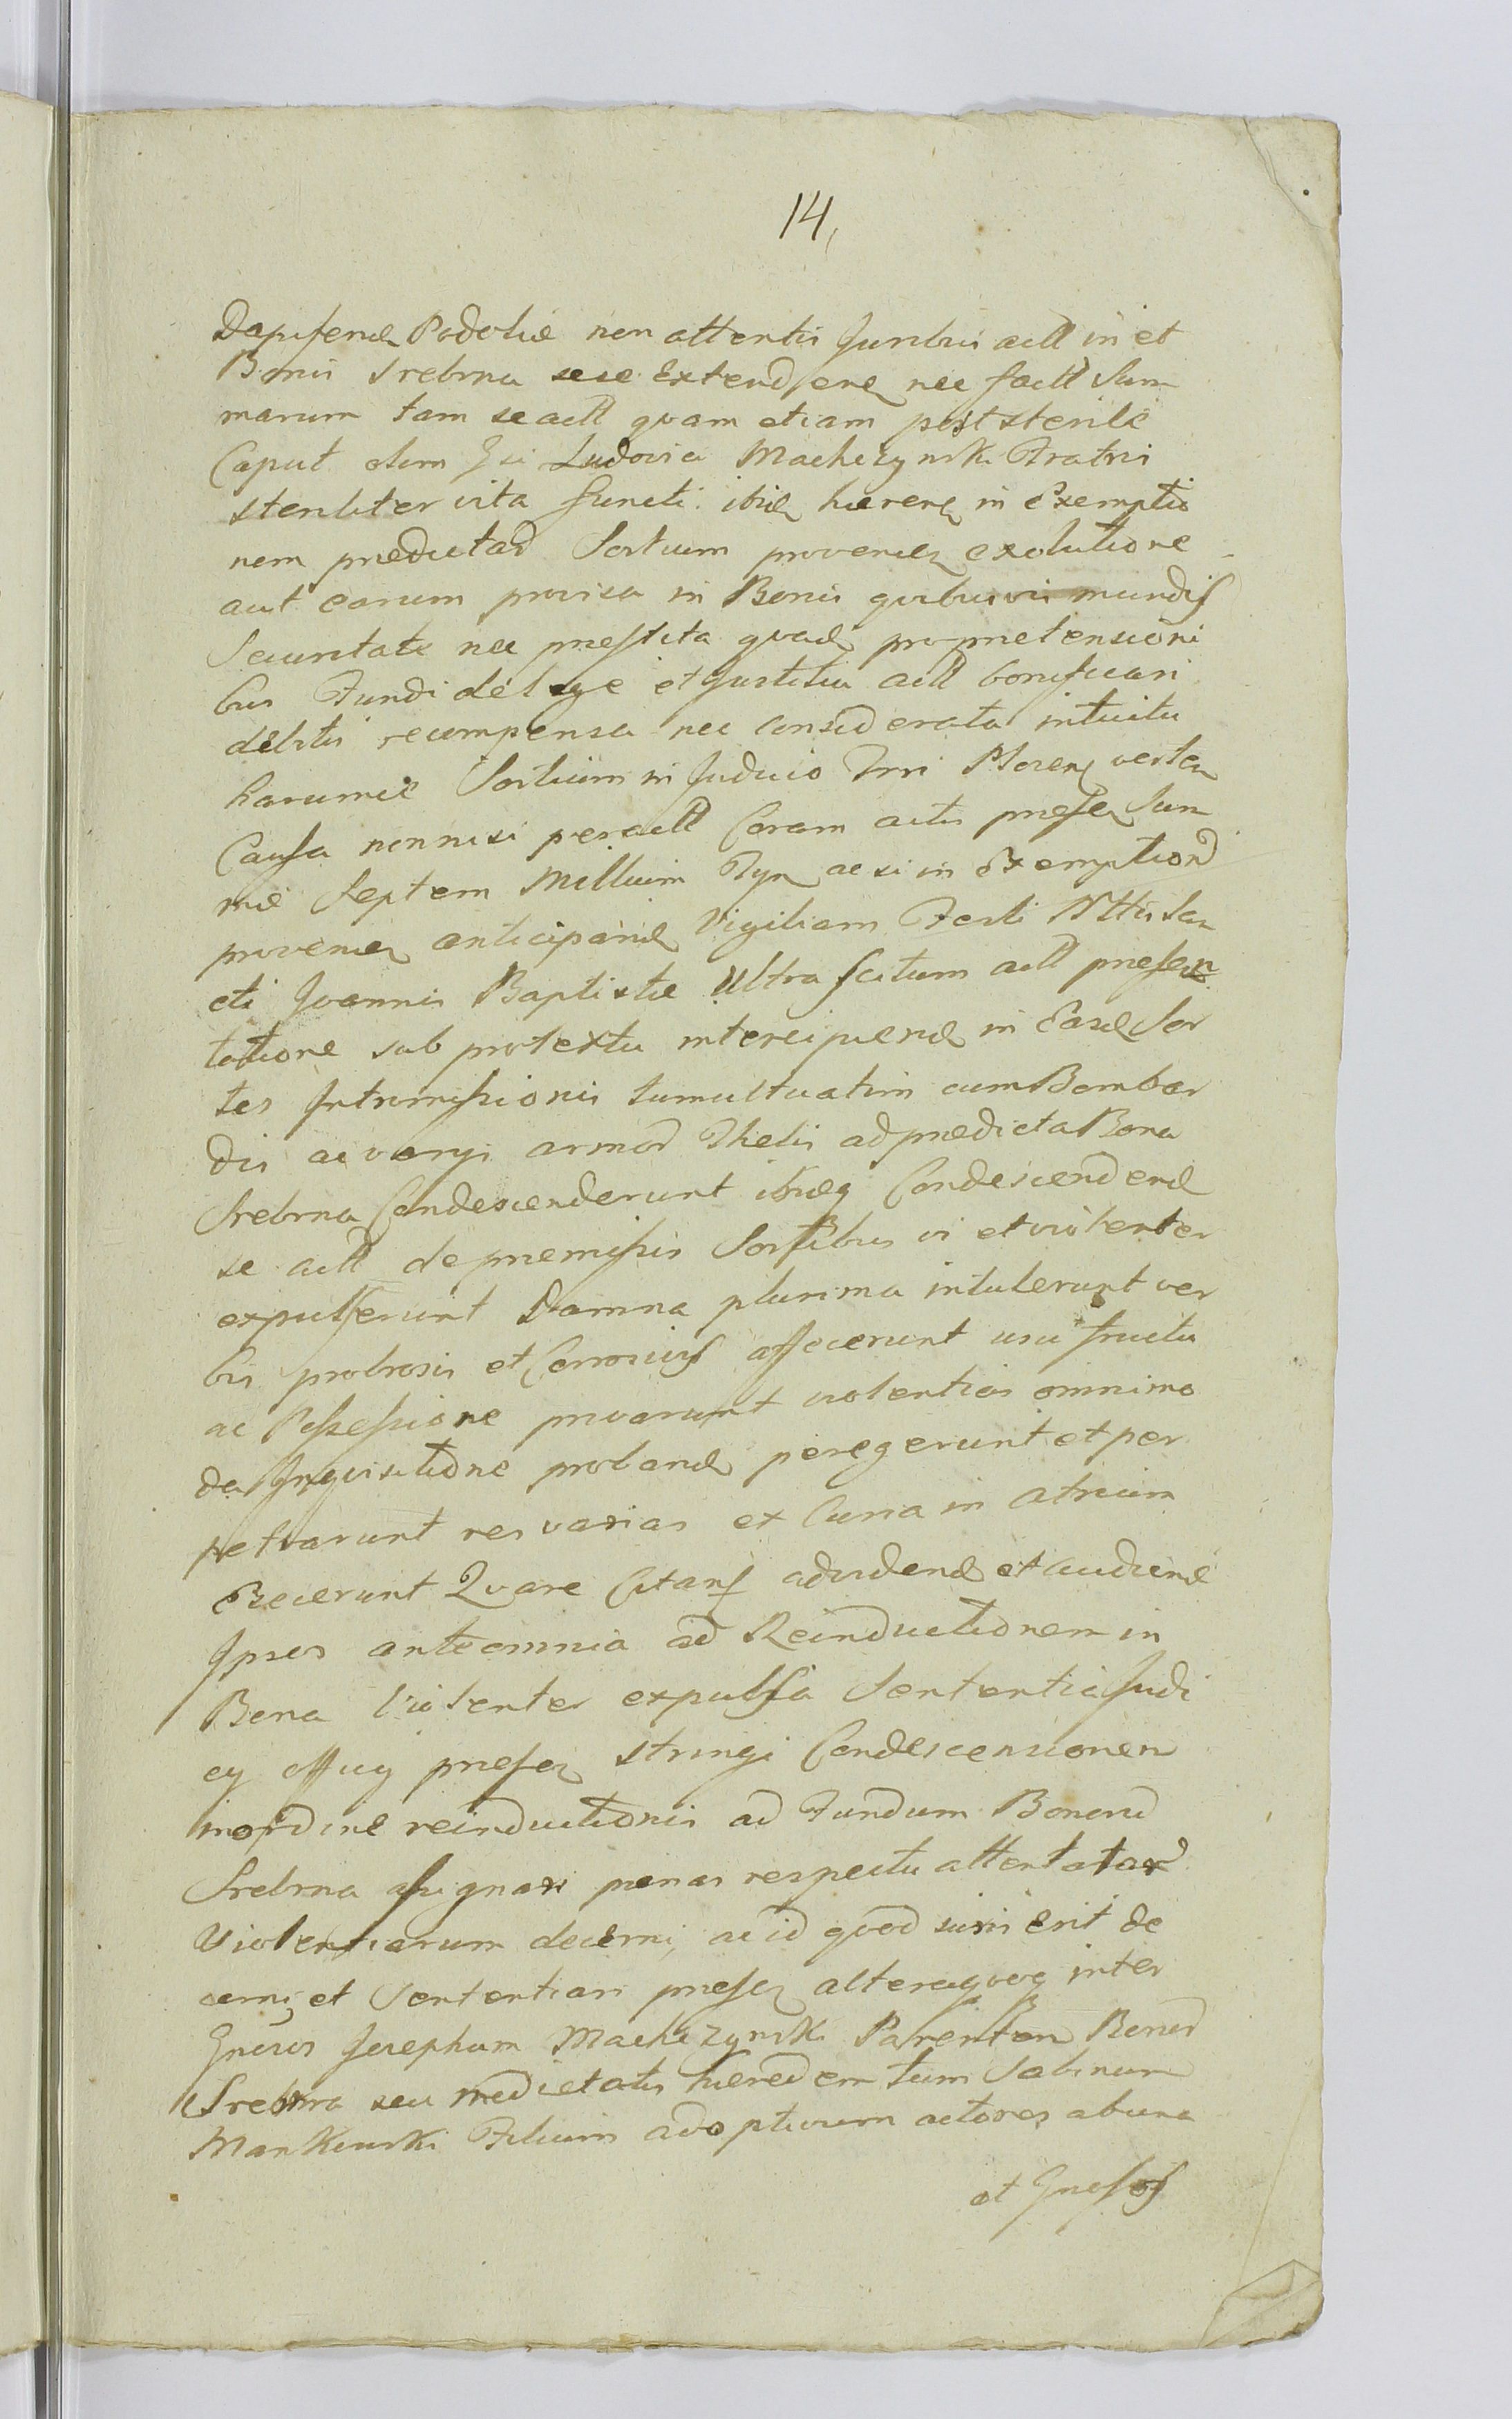 14,
Dapiferid Podoliæ non attentis Juribus actt in et
Bonis Srebrna sese Extendt
marum tam se actt quam etiam post sterile
Caput olim Ludovici Machczynski Fratris
steriliter vita functi ibiq hæren in Exemptio
nem prædictar Sortium provenien exolutione
aut earum provisa in Bonis quibusvis mundis
Securitate nec præstita quad pro prætensioni
bus Fundi de lege et Justitia actt bonificari
debitis recompensa nec considerata intuitu
harumce Sortium in Judicio Trri Plocen verten
Causa nonnisi per actt Coram actis præsen Sum
mæ Septem Millium Tyn ac si in Exemption
provenien anticipand Vigiliam Festi Nttis San
cti Joannis Baptistæ Ultra scitum actt præsen
tatione sub protextu intercipiend in Easd Sor
tes Intromissionis tumultuatim cum Bombar
dis ac varys armor Thelis ad prædicta Bona
Srebrna Condescenderunt ibidq Condescendend
se actt de præmissis Sortibus vi et violenter
expulserunt Damna plurima intulerunt ver
bis probrosis et Corrosivis affecerunt usu fructu
ac Possessione privarunt violentias omnimo
da Inquisitione proband peregerunt et per
petrarunt res varias ex Curia in atrium
Ejecerunt Quare Citans ad vidend et audiend
Ipsos ante omnia ad Reinductionem in
Bona Violenter expulsa Sententia Judi
cy Officy præsen stringi Condescensionem
in ordine reinductionis ad Fundum Bonord
Srebrna assignari pænas respectu attentatar
Violentiarum decerni, ac id quod juris erit de
cerni et Sententiari præsen alteraquoq inter
Gnesos Josephum Machczynski Parentem Bonor
Srebrna seu medietatis hæredem tum Sabinum
Mankowski Filium adoptivum actores ab una
et Gnesos